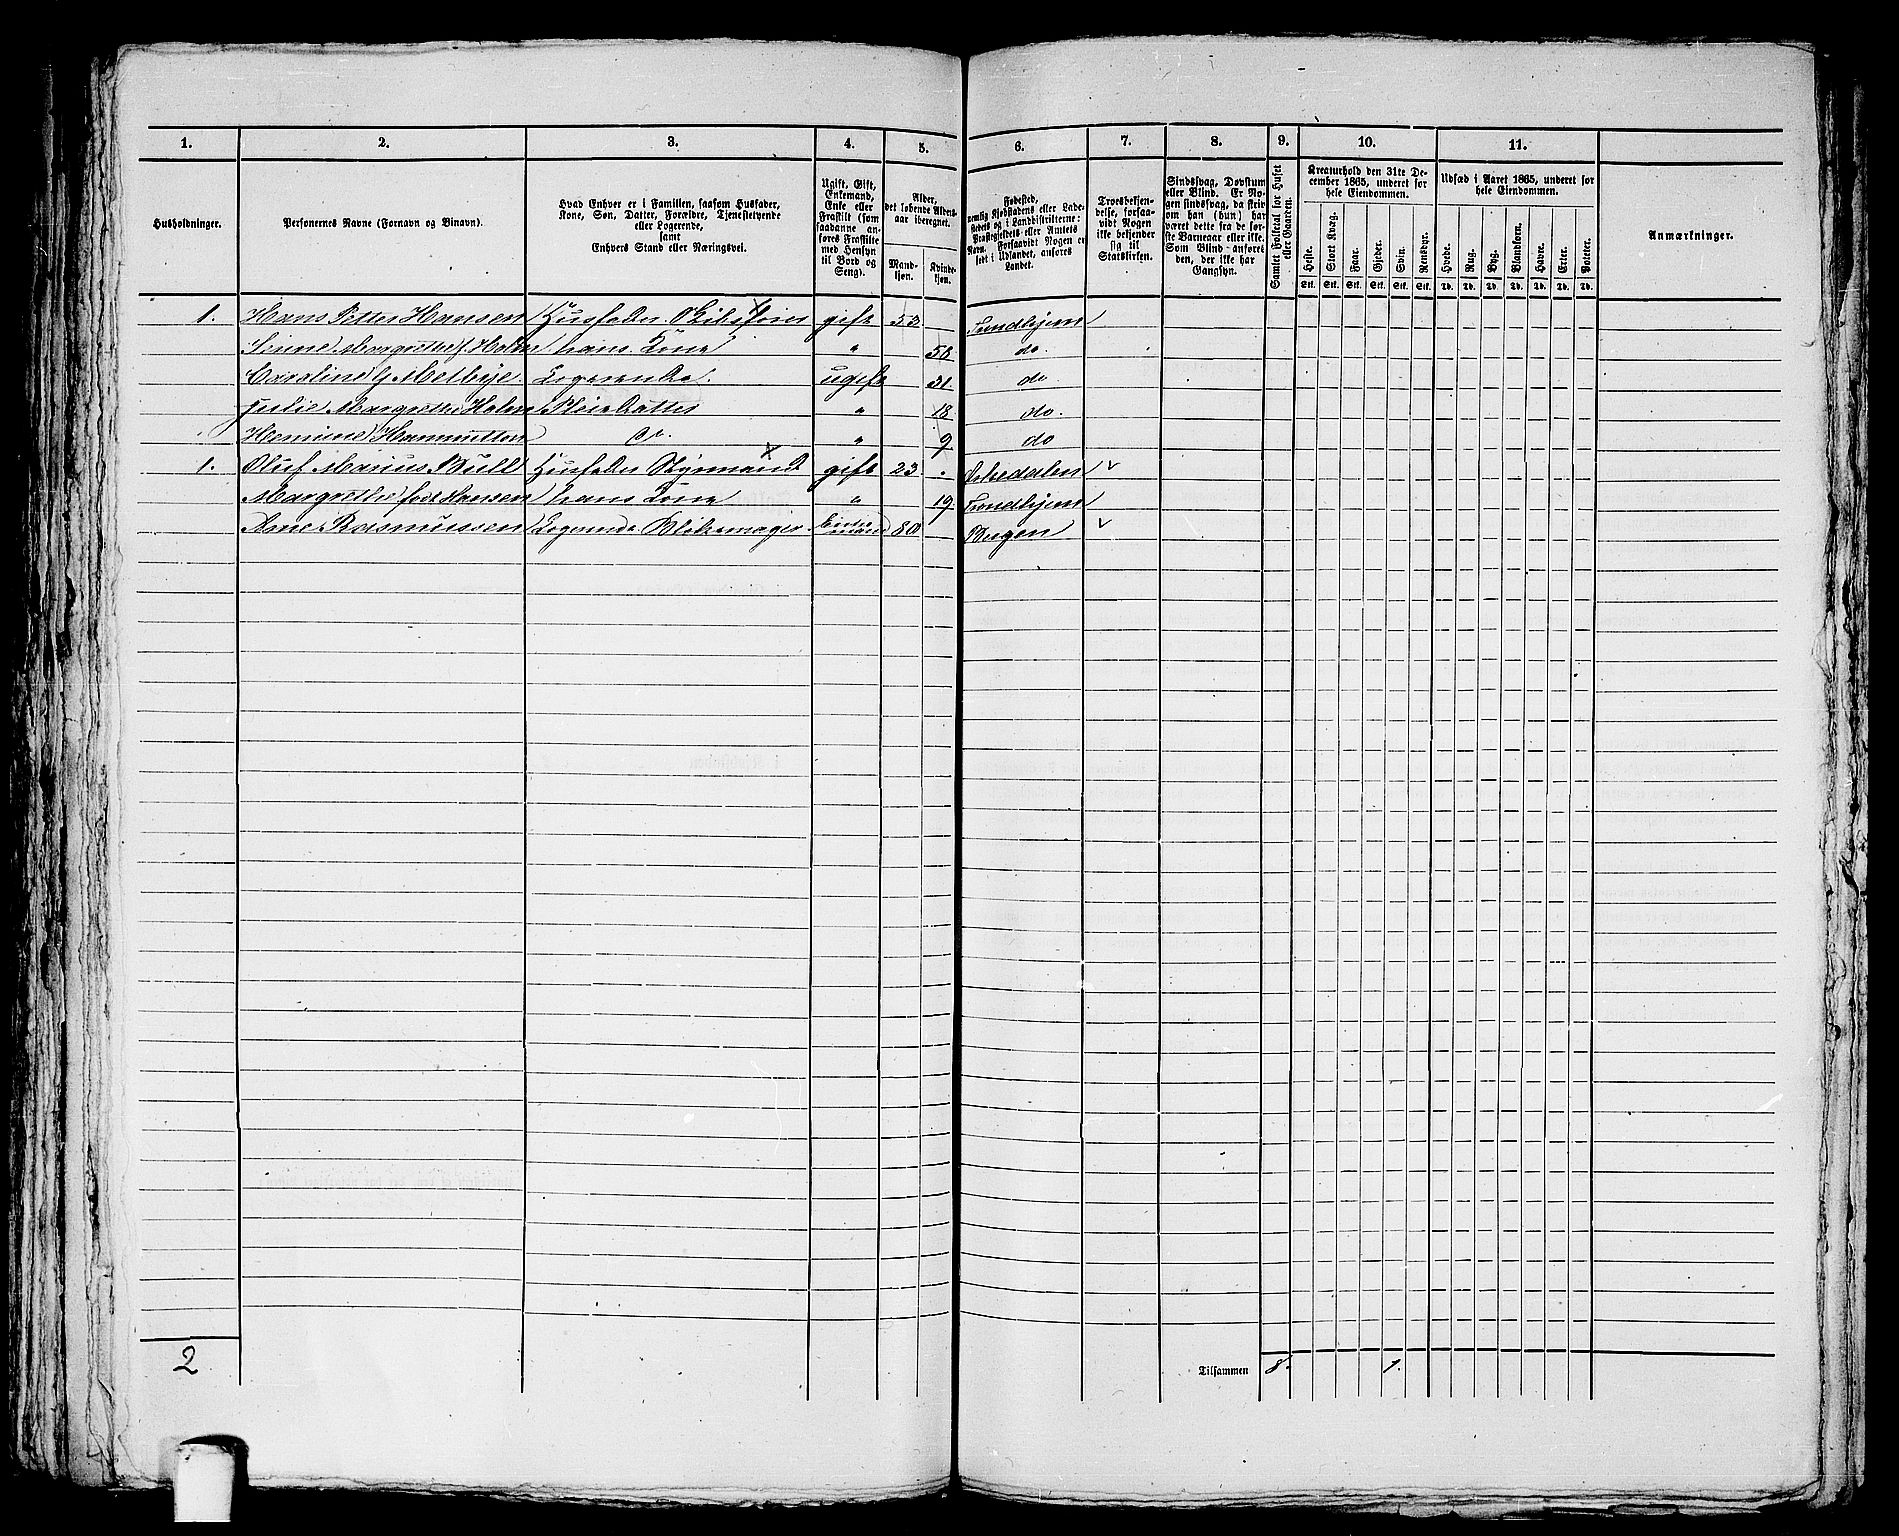 1. 2. 3. 4. 5. 6. 7. 8. 9. 10. 11.
Husholdninger.
Personernes Navne (Fornavn og Binavn).
Hvad Enhver er i Familien, saasom Husfader,
Kone, Søn, Datter, Forældre, Tjenestetyende
eller Logerende,
samt
Enhvers Stand eller Næringsvei.
Ugift, Gift,
Enkemand,
Enke eller
Fraskilt (som
saadanne an-
føres Fraskilte
med Hensyn
til Bord og
Seng).
Alder,
det løbende Alders-
aar iberegnet.
Mand-
kjøn.
Kvinde-
kjøn.
Fødested,
nemlig Kjøbstadens eller Lade-
stedets og i Landdistrikterne:
Præstegjeldets eller Amtets
Navn. Forsaavidt Nogen er
født i Udlandet, anføres
Landet.
Troesbekjen-
delse, forsaa-
vidt Nogen
ikke bekjender
sig til
Statskirken.
Sindssvag, Døvstum
eller Blind. Er No-
gen sindssvag, da skriv
om han (hun) har
været dette fra de før-
ste Barneaar eller ikke.
Som Blind anføres
den, der ikke har
Gangsyn.
Samlet Folketal for Huset
eller Gaarden.
Kreaturhold den 31te De-
cember 1865, underet for
hele Eiendommen.
Heste. Stort Kvæg. Faar. Gjeder. Svin. Rensdyr.
Stk. Stk. Stk. Stk. Stk. Stk.
Udsæd i Aaret 1865, underet for
hele Eiendommen.
Hvede. Rug. Byg. Blandkorn. Havre. Erter. Poteter.
Td. Td. Td. Td. Td. Td. Td.
Anmærkninger.
1. Hans Petter Hansen Husfader gift 53 Trondhjem
Margrethe f. Holm hans Kone " 58 do.
Caroline G Melbye. Logerende. ugift 31 do
Margrethe Holm Pleiedatter " 18 do.
Hermine do. " 9 do
1. Oluf Marius Bull Husfader Styrmand gift 23
Margrethe født Hansen hans Kone " 19 Trondhjem
Rasmussen Logerende Enke-
mand 80 Bergen
2
Tilsammen 8. 1.